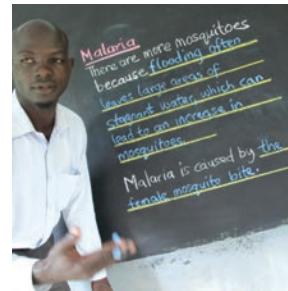 Malaria
There are more mosquitoes
because flooding often
leaves large areas of
stagnant water, which can
lead to an increase in
mosquitoes.
Malaria is caused by the
female mosquito bite.